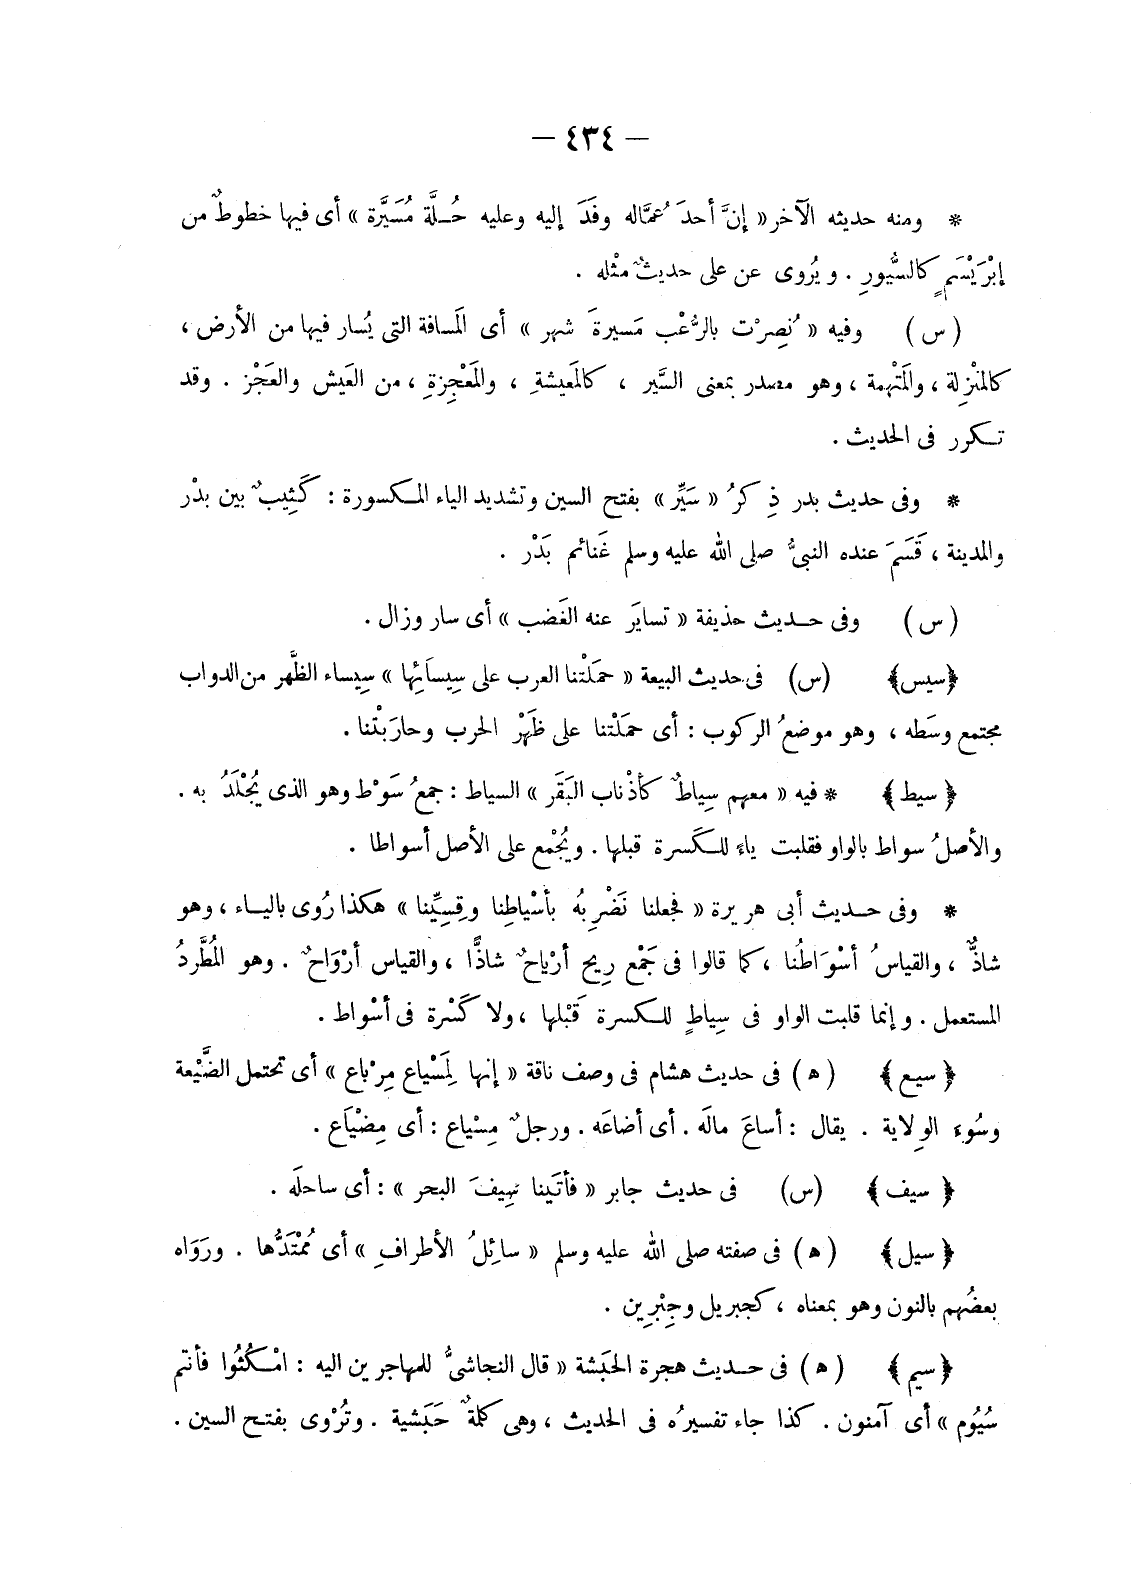 — ٤٣٤ —
* ومنه حديثه الآخر « إنَّ أحدَ عُمَّاله وفَدَ إليه وعليه حُـلَّة مُسَيَّرة » أى فيها خطوطٌ من
إبْرَيْسَمٍ كالسُّيورِ . ويُروى عن على حديثٌ مثْله .
( س ) وفيه « نُصِرْت بالرُّعْب مَسيرةَ شهر » أى المَسافة التى يُسار فيها من الأرض ،
كالمنْزِلة ، والمَتْهِمة ، وهو مصدر بمعنى السَّير ، كالمَعيشةِ ، والمَعْجِزةِ ، من العَيش والعَجْز . وقد
تـكرر فى الحديث .
* وفى حديث بدر ذِكرُ « سَيِّر » بفتح السين وتشديد الياء المـكسورة : كَثِيبٌ بين بدْر
والمدينة ، قَسَمَ عنده النبىُّ صلى الله عليه وسلم غَنائم بَدْر .
( س ) وفى حـديث حذيفة « تسايَر عنه الغَضب » أى سار وزال .
﴿سيس﴾ (س) فى حديث البيعة « حمَلَتْنا العرب على سِيسَائِها » سِيساء الظَّهر من الدواب
مجتمع وسَطه ، وهو موضعُ الركوب : أى حمَلَتْنا على ظَهْر الحرب وحارَبْتنا .
﴿ سيط ﴾ * فيه « معهم سِياطٌ كأذْناب البَقَر » السياط : جمعُ سَوْط وهو الذى يُجْلَدُ به .
والأصلُ سواط بالواو فقلبت ياءً للـكَسرة قبلها . ويُجْمع على الأصل أسواطا .
* وفى حـديث أبى هريرة « فجعلنا نَضْرِبُه بأسْياطِنا وقِسِيِّنا » هكذا رُوى باليـاء ، وهو
شاذٌّ ، والقياسُ أسْوَاطُنا ، كما قالوا فى جَمْع رِيح أرْياحٌ شاذًّا ، والقياس أرْوَاحٌ . وهو المُطَّردُ
المستعمل . وإنما قلبت الواو فى سِياطٍ للـكسرة قَبْلها ، ولا كَسْرة فى أسْواط .
﴿ سيع ﴾ ( ه ) فى حديث هشام فى وصف ناقة « إنها لَمِسْياع مِرْباع » أى تحتمل الضَّيْعة
وسُوءَ الوِلاية . يقال : أساعَ مالَه . أى أضاعَه . ورجلٌ مِسْياع : أى مِضْيَاع .
﴿ سيف ﴾ (س) فى حديث جابر « فأتَينا سِيفَ البحر » : أى ساحلَه .
﴿ سيل ﴾ ( ه ) فى صفته صلى الله عليه وسلم « سائِلُ الأطرافِ » أى مُمْتَدُّها . ورَوَاه
بعضُهم بالنون وهو بمعناه ، كجبريل وجِبْرِين .
﴿ سيم ﴾ ( ه ) فى حـديث هجرة الحَبَشة « قال النجاشىُّ للمهاجرين اليه : امْـكُثُوا فأنتم
سُيُوم » أى آمنون . كذا جاء تفسيرُه فى الحديث ، وهى كلمةٌ حَبَشية . وتُرْوى بفتـح السين .